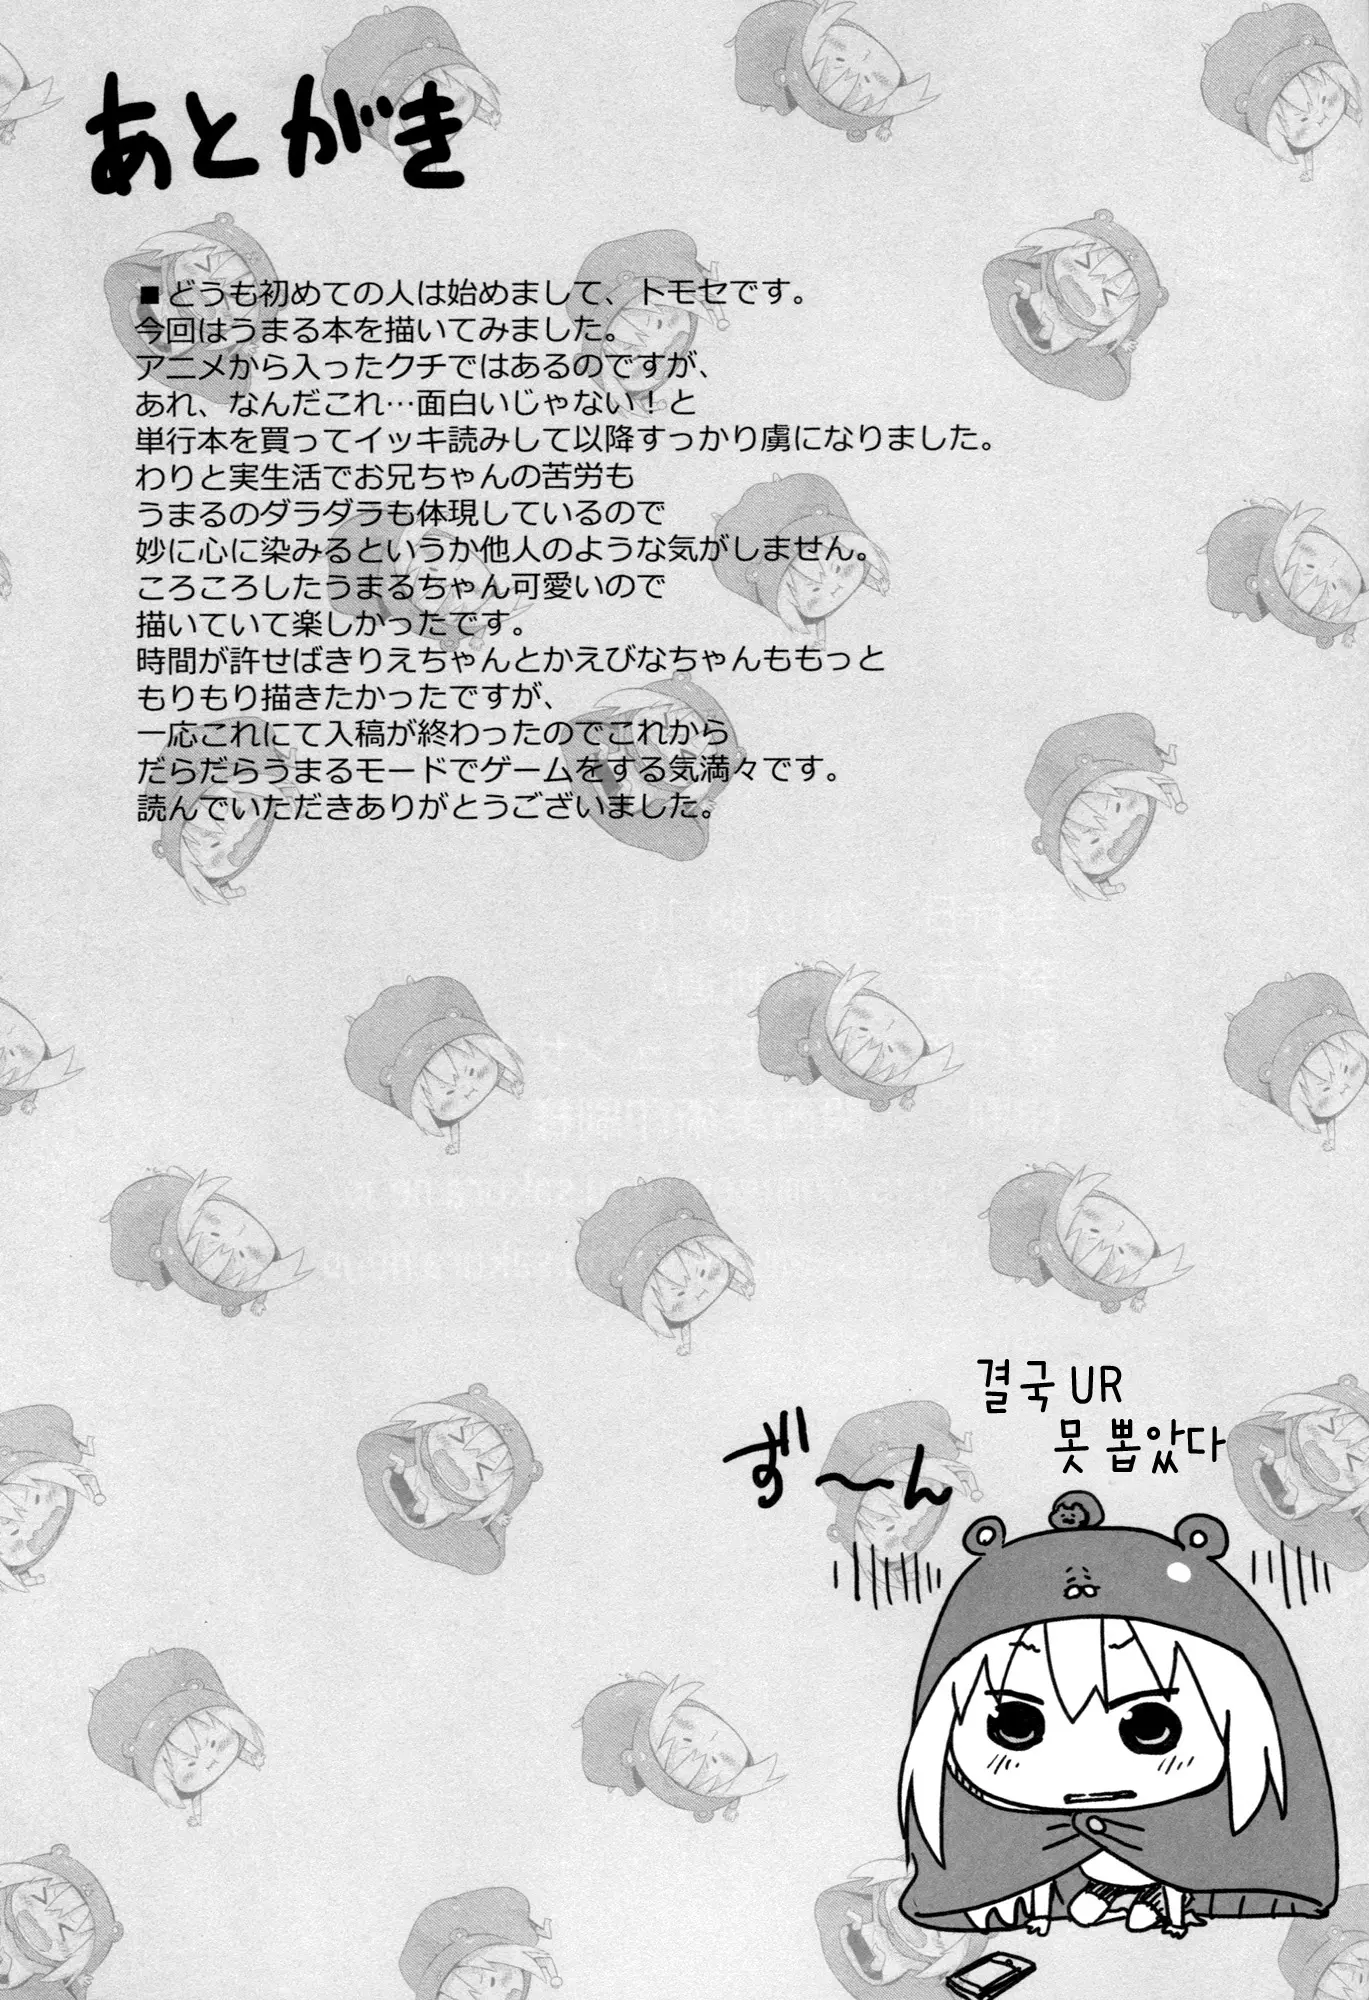 あとがき
■どうも初めての人は始めまして、トモセです。
今回はうまる本を描いてみました。
アニメから入ったクチではあるのですが、
あれ、なんだこれ…面白いじゃない!と
単行本を買ってイッキ読みして以降すっかり虜になりました。
わりと実生活でお兄ちゃんの苦労も
うまるのダラダラも体現しているので
妙に心に染みるというか他人のような気がしません。
ころころしたうまるちゃん可愛いので
描いていて楽しかったです。
時間が許せばきりえちゃんとかえびなちゃんももっと
もりもり描きたかったですが、
一応これにて入稿が終わったのでこれから
だらだらうまるモードでゲームをする気満々です。
読んでいただきありがとうございました。
결국 UR
못 뽑았다
ず〜ん